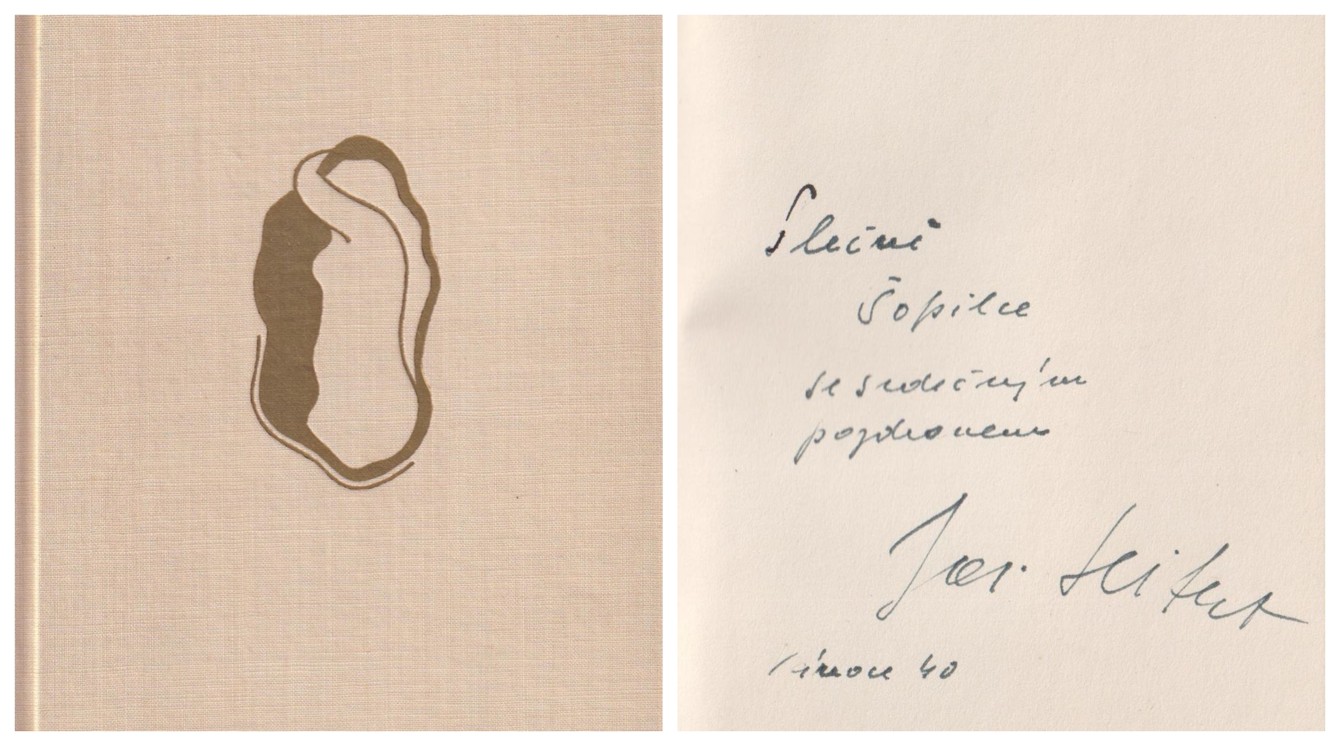 Slečně
Šopilce
se srdečným
pozdravem
Jar. Seifert
Vánoce 40